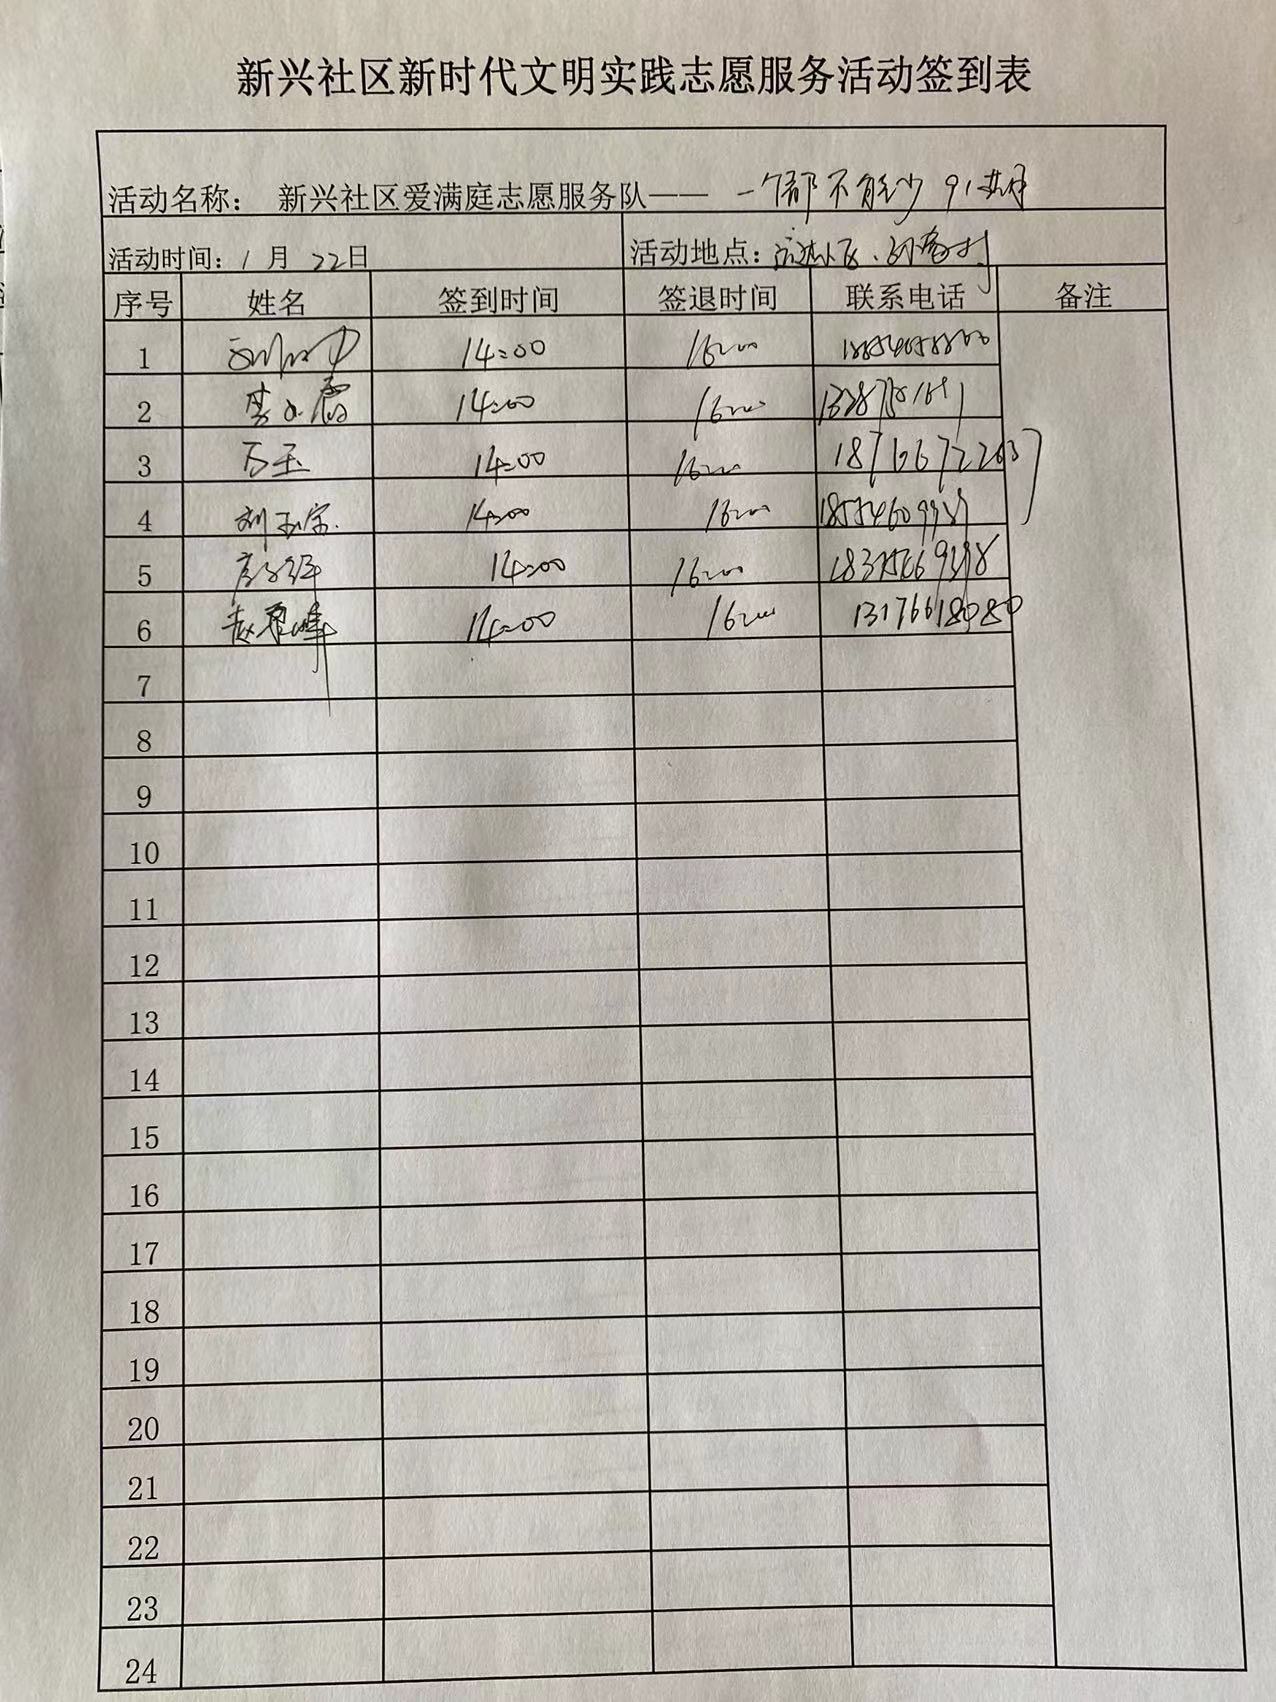 新兴社区新时代文明实践志愿服务活动签到表
活动名称： 新兴社区爱满庭志愿服务队—— 一个都不能少
活动时间：1 月 22日 活动地点：
序号 姓名 签到时间 签退时间 联系电话 备注
1 14:00 16:00
2 14:00 16:00
3 万玉 14:00 16:00
4 刘玉宝 14:00 16:00
5 14:00 16:00
6 14:00 16:00 13176618080
7
8
9
10
11
12
13
14
15
16
17
18
19
20
21
22
23
24